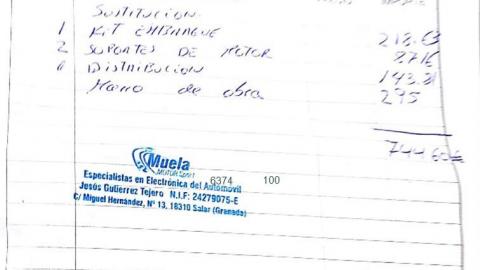 SUSTITUCION
1 KIT EMBRAGUE 218.63
2 SUPORTES DE MOTOR 87.16
6 DISTRIBUCION 143.81
Mano de obra 295
744.60€
Muela
MOTOR Sport
6374 100
Especialistas en Electrónica del Automóvil
Jesús Gutiérrez Tejero N.I.F: 24279075-E
C/ Miguel Hernández, Nº 13, 18310 Salar (Granada)